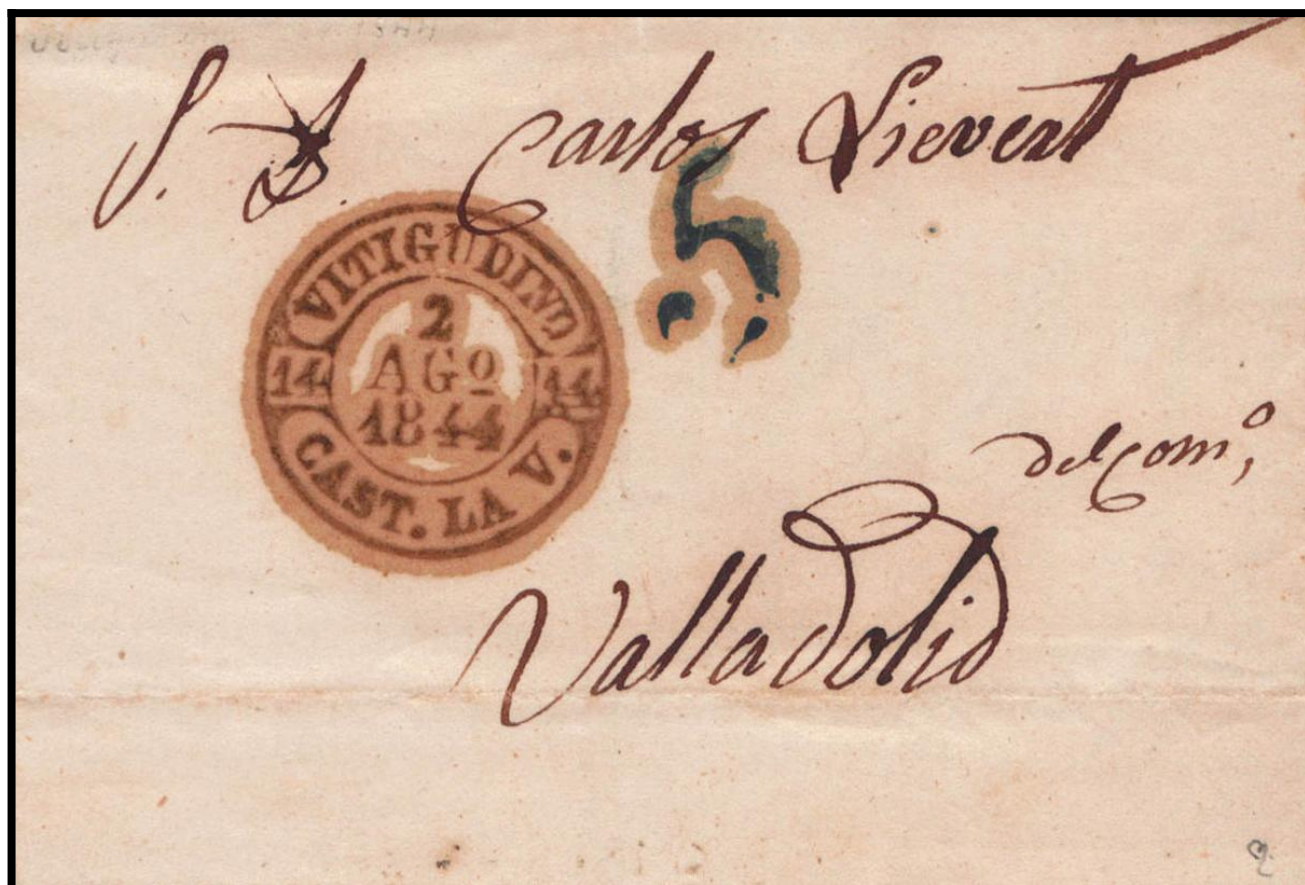 S. D. Carlos Lievert
5
VITIGUDINO
2
14 AGO 14
1844
CAST. LA V.
del Comº,
Valladolid